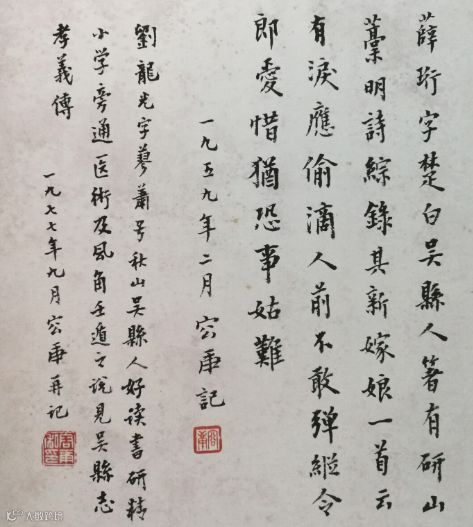 薛珩字楚白吳縣人箸有研山
藁明詩綜錄其新嫁娘一首云
有淚應偷滴人前不敢彈縱令
郎愛惜猶恐事姑難
一九五九年二月 容庚記
容庚
劉龍光字蓼蕭号秋山吳縣人好读書研精
小学旁通医術及風角壬遁之说見吳縣志
孝義傳
一九七七年九月容庚再记